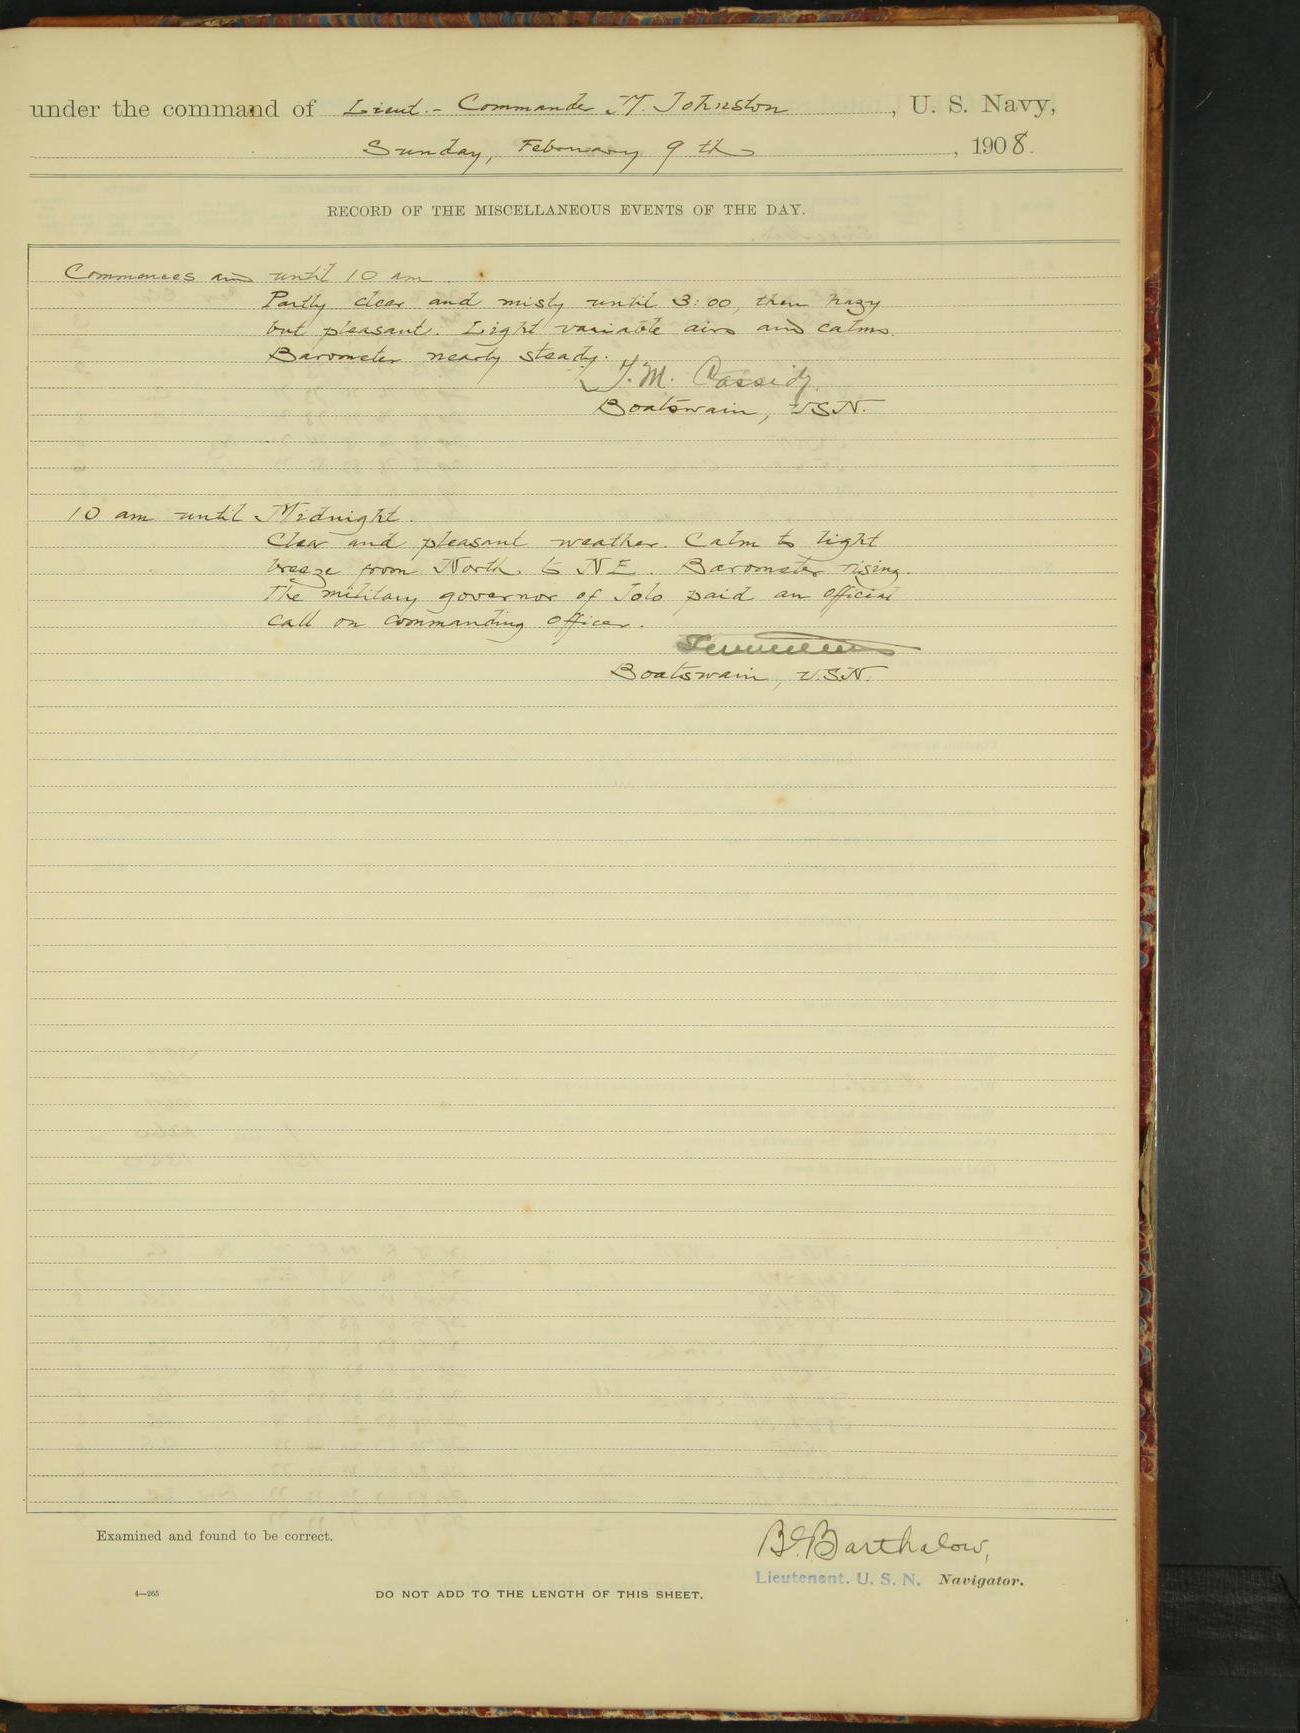 under the command of Lieut.- Commander M. Johnston, U. S. Navy,
Sunday, February 9th, 1908.
RECORD OF THE MISCELLANEOUS EVENTS OF THE DAY.
Commences and until 10 am
Partly clear and misty until 3:00, then hazy
but pleasant. Light variable airs and calms.
Barometer nearly steady.
M. Cassidy.
Boatswain, USN.
10 am until Midnight.
Clear and pleasant weather. Calm to light
breeze from North to NE. Barometer rising.
The military governor of Jolo paid an official
call on commanding officer.
Boatswain, U.S.N.
Examined and found to be correct.
Barthalow,
Lieutenant. U. S. N. Navigator.
4—265
DO NOT ADD TO THE LENGTH OF THIS SHEET.